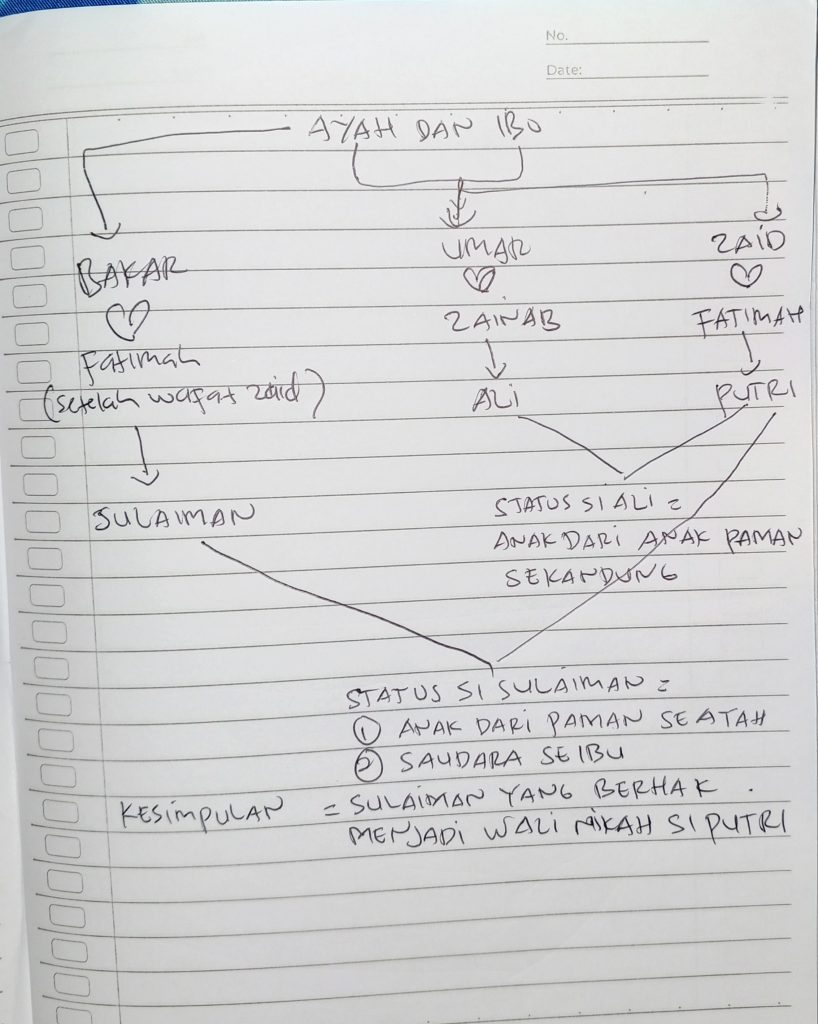 No.
Date:
AYAH DAN IBU
BAKAR
UMAR
ZAID
ZAINAB
FATIMAH
Fatimah
(setelah wafat zaid)
ALI
PUTRI
SULAIMAN
STATUS SI ALI =
ANAK DARI ANAK PAMAN
SEKANDUNG
STATUS SI SULAIMAN =
① ANAK DARI PAMAN SEAYAH
② SAUDARA SEIBU
KESIMPULAN = SULAIMAN YANG BERHAK.
MENJADI WALI NIKAH SI PUTRI